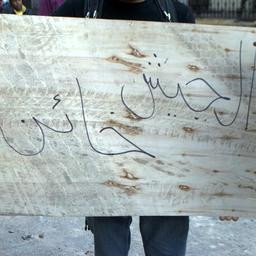 الجيش
خائن